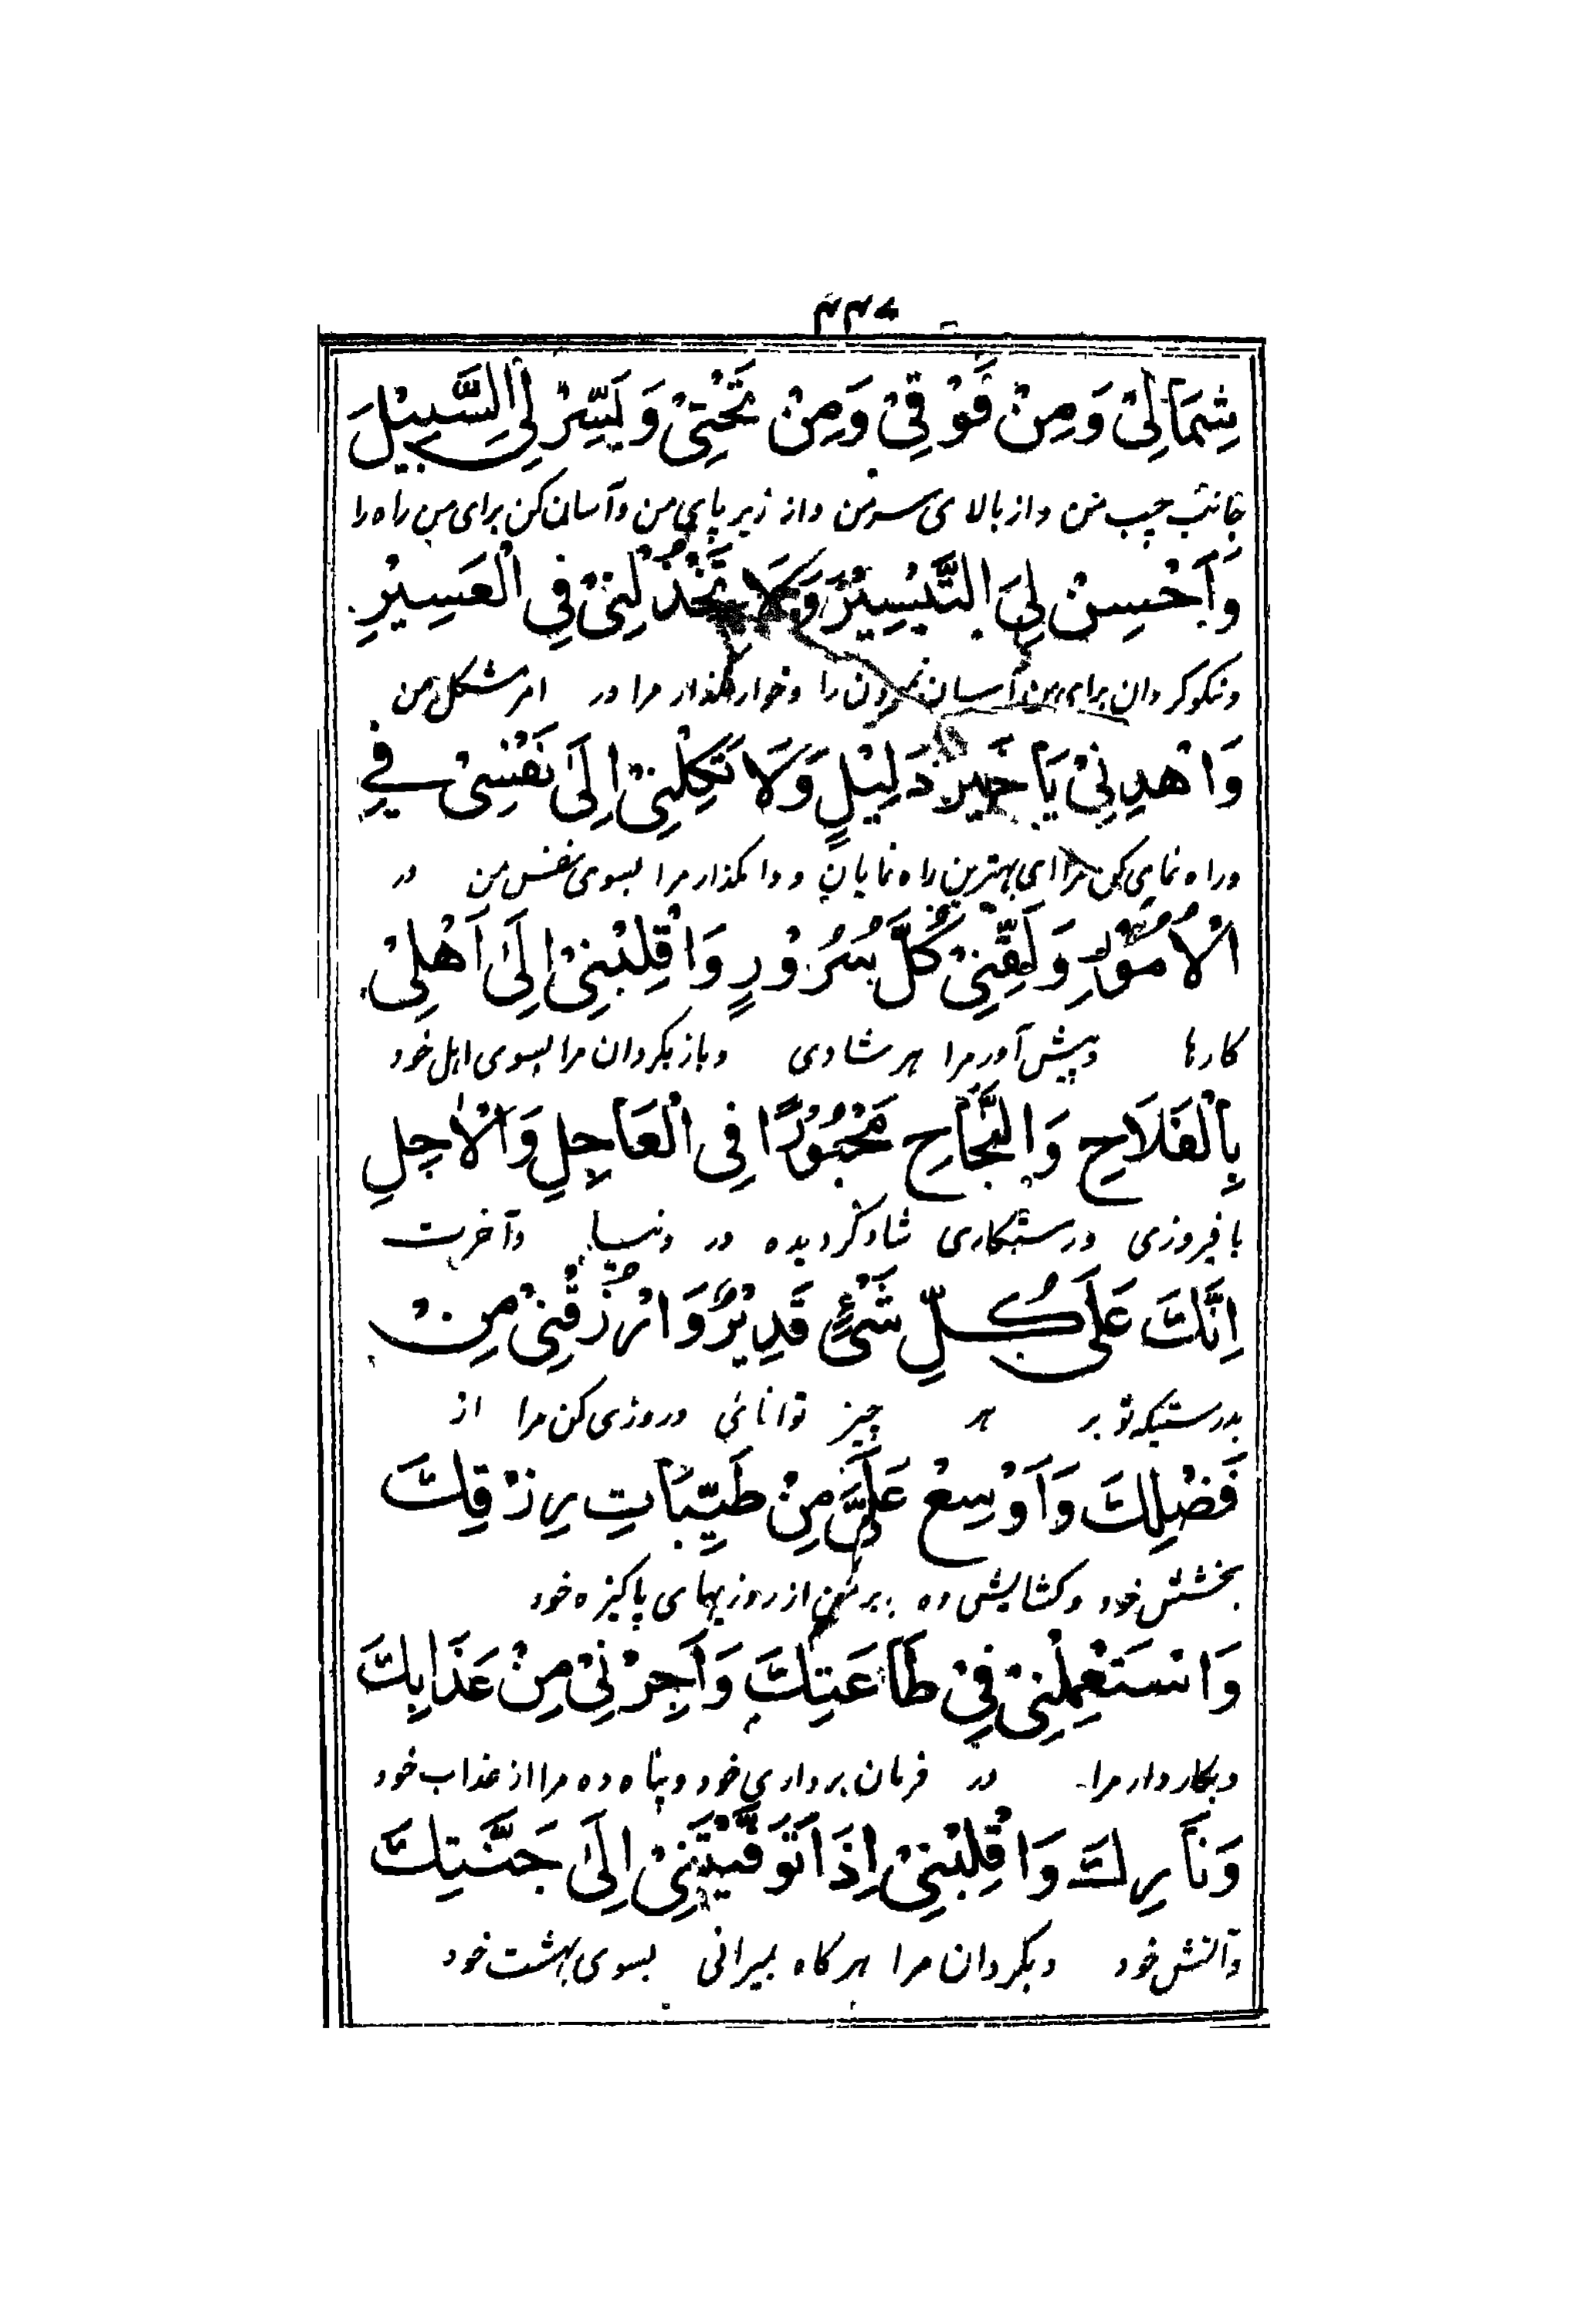 شِمَالِيْ وَمِنْ فَوْقِيْ وَمِنْ تَحْتِيْ وَيَسِّرْ لِيَ السَّبِيْلَ
جانب چپ من و از بالای سر من و از زیر پای من و آسان کن برای من راه را
وَاَحْسِنْ لِيَ التَّيْسِيْرَ وَلَا تَخْذُلْنِيْ فِي الْعَسِيْرِ
و نیکو گردان برای من آسان نمودن را و خوار مگذار مرا در امر مشکل من
وَاهْدِنِيْ يَا خَيْرَ دَلِيْلٍ وَلَا تَكِلْنِيْ اِلَى نَفْسِيْ فِي
و راه نمای کن مرا ای بهترین راه نمایان و وا مگذار مرا بسوی نفس من در
الْاُمُوْرِ وَلَقِّنِيْ كُلَّ سُرُوْرٍ وَاقْلِبْنِيْ اِلَى اَهْلِيْ
کارها و پیش آور مرا هر شادی و باز بگردان مرا بسوی اهل خود
بِالْفَلَاحِ وَالنَّجَاحِ مَحْبُوْرًا فِي الْعَاجِلِ وَالْاٰجِلِ
با فیروزی و رستگاری شاد گردیده در دنیا و آخرت
اِنَّكَ عَلَى كُلِّ شَيْءٍ قَدِيْرٌ وَارْزُقْنِيْ مِنْ
بدرستیکه تو بر هر چیز توانائی و روزی کن مرا از
فَضْلِكَ وَاَوْسِعْ عَلَيَّ مِنْ طَيِّبَاتِ رِزْقِكَ
بخشش خود و کشایش ده بر من از روزیهای پاکیزه خود
وَاسْتَعْمِلْنِيْ فِيْ طَاعَتِكَ وَاَجِرْنِيْ مِنْ عَذَابِكَ
و بکار دار مرا در فرمان برداری خود و پناه ده مرا از عذاب خود
وَنَارِكَ وَاقْلِبْنِيْ اِذَا تَوَفَّيْتَنِيْ اِلَى جَنَّتِكَ
و آتش خود و بگردان مرا هر گاه بمیرانی بسوی بهشت خود